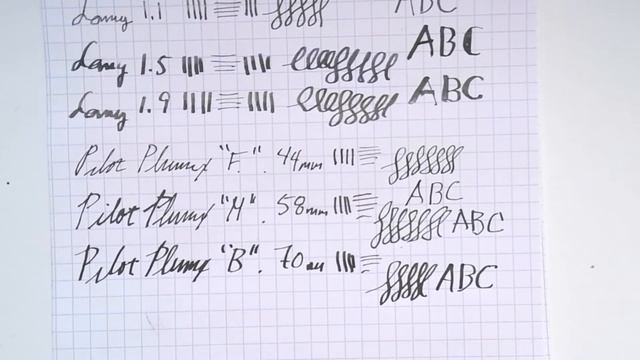 Lamy 1.1 ABC
Lamy 1.5 ABC
Lamy 1.9 ABC
Pilot Plumix "F". 44mm
ABC
Pilot Plumix "M". 58mm ABC
Pilot Plumix "B". 70mm ABC